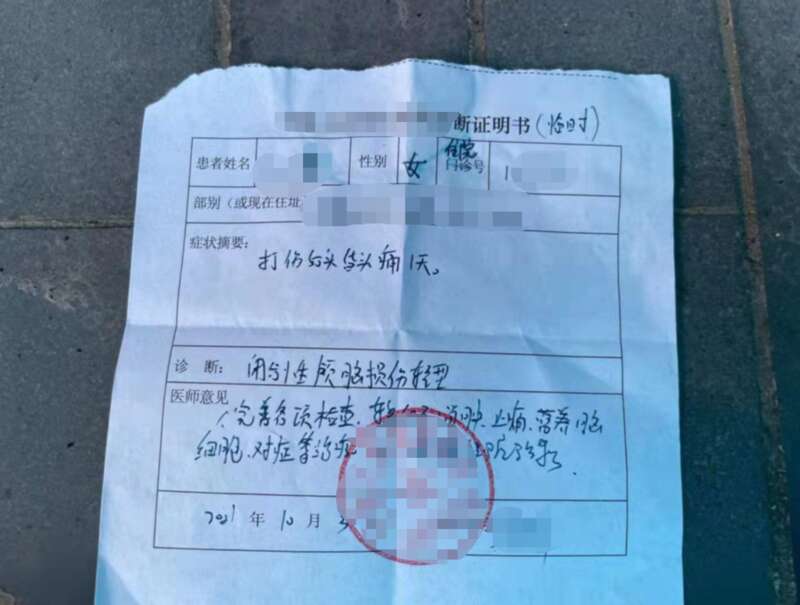 断证明书(临时)
患者姓名 性别 女 住院 门诊号 1
部别(或现在住址
症状摘要:
打伤后头昏头痛1天。
诊 断: 闭合性颅脑损伤轻型
医师意见
完善各项检查 消肿、止痛、营养脑
细胞、对症等治疗
2021 年 10 月